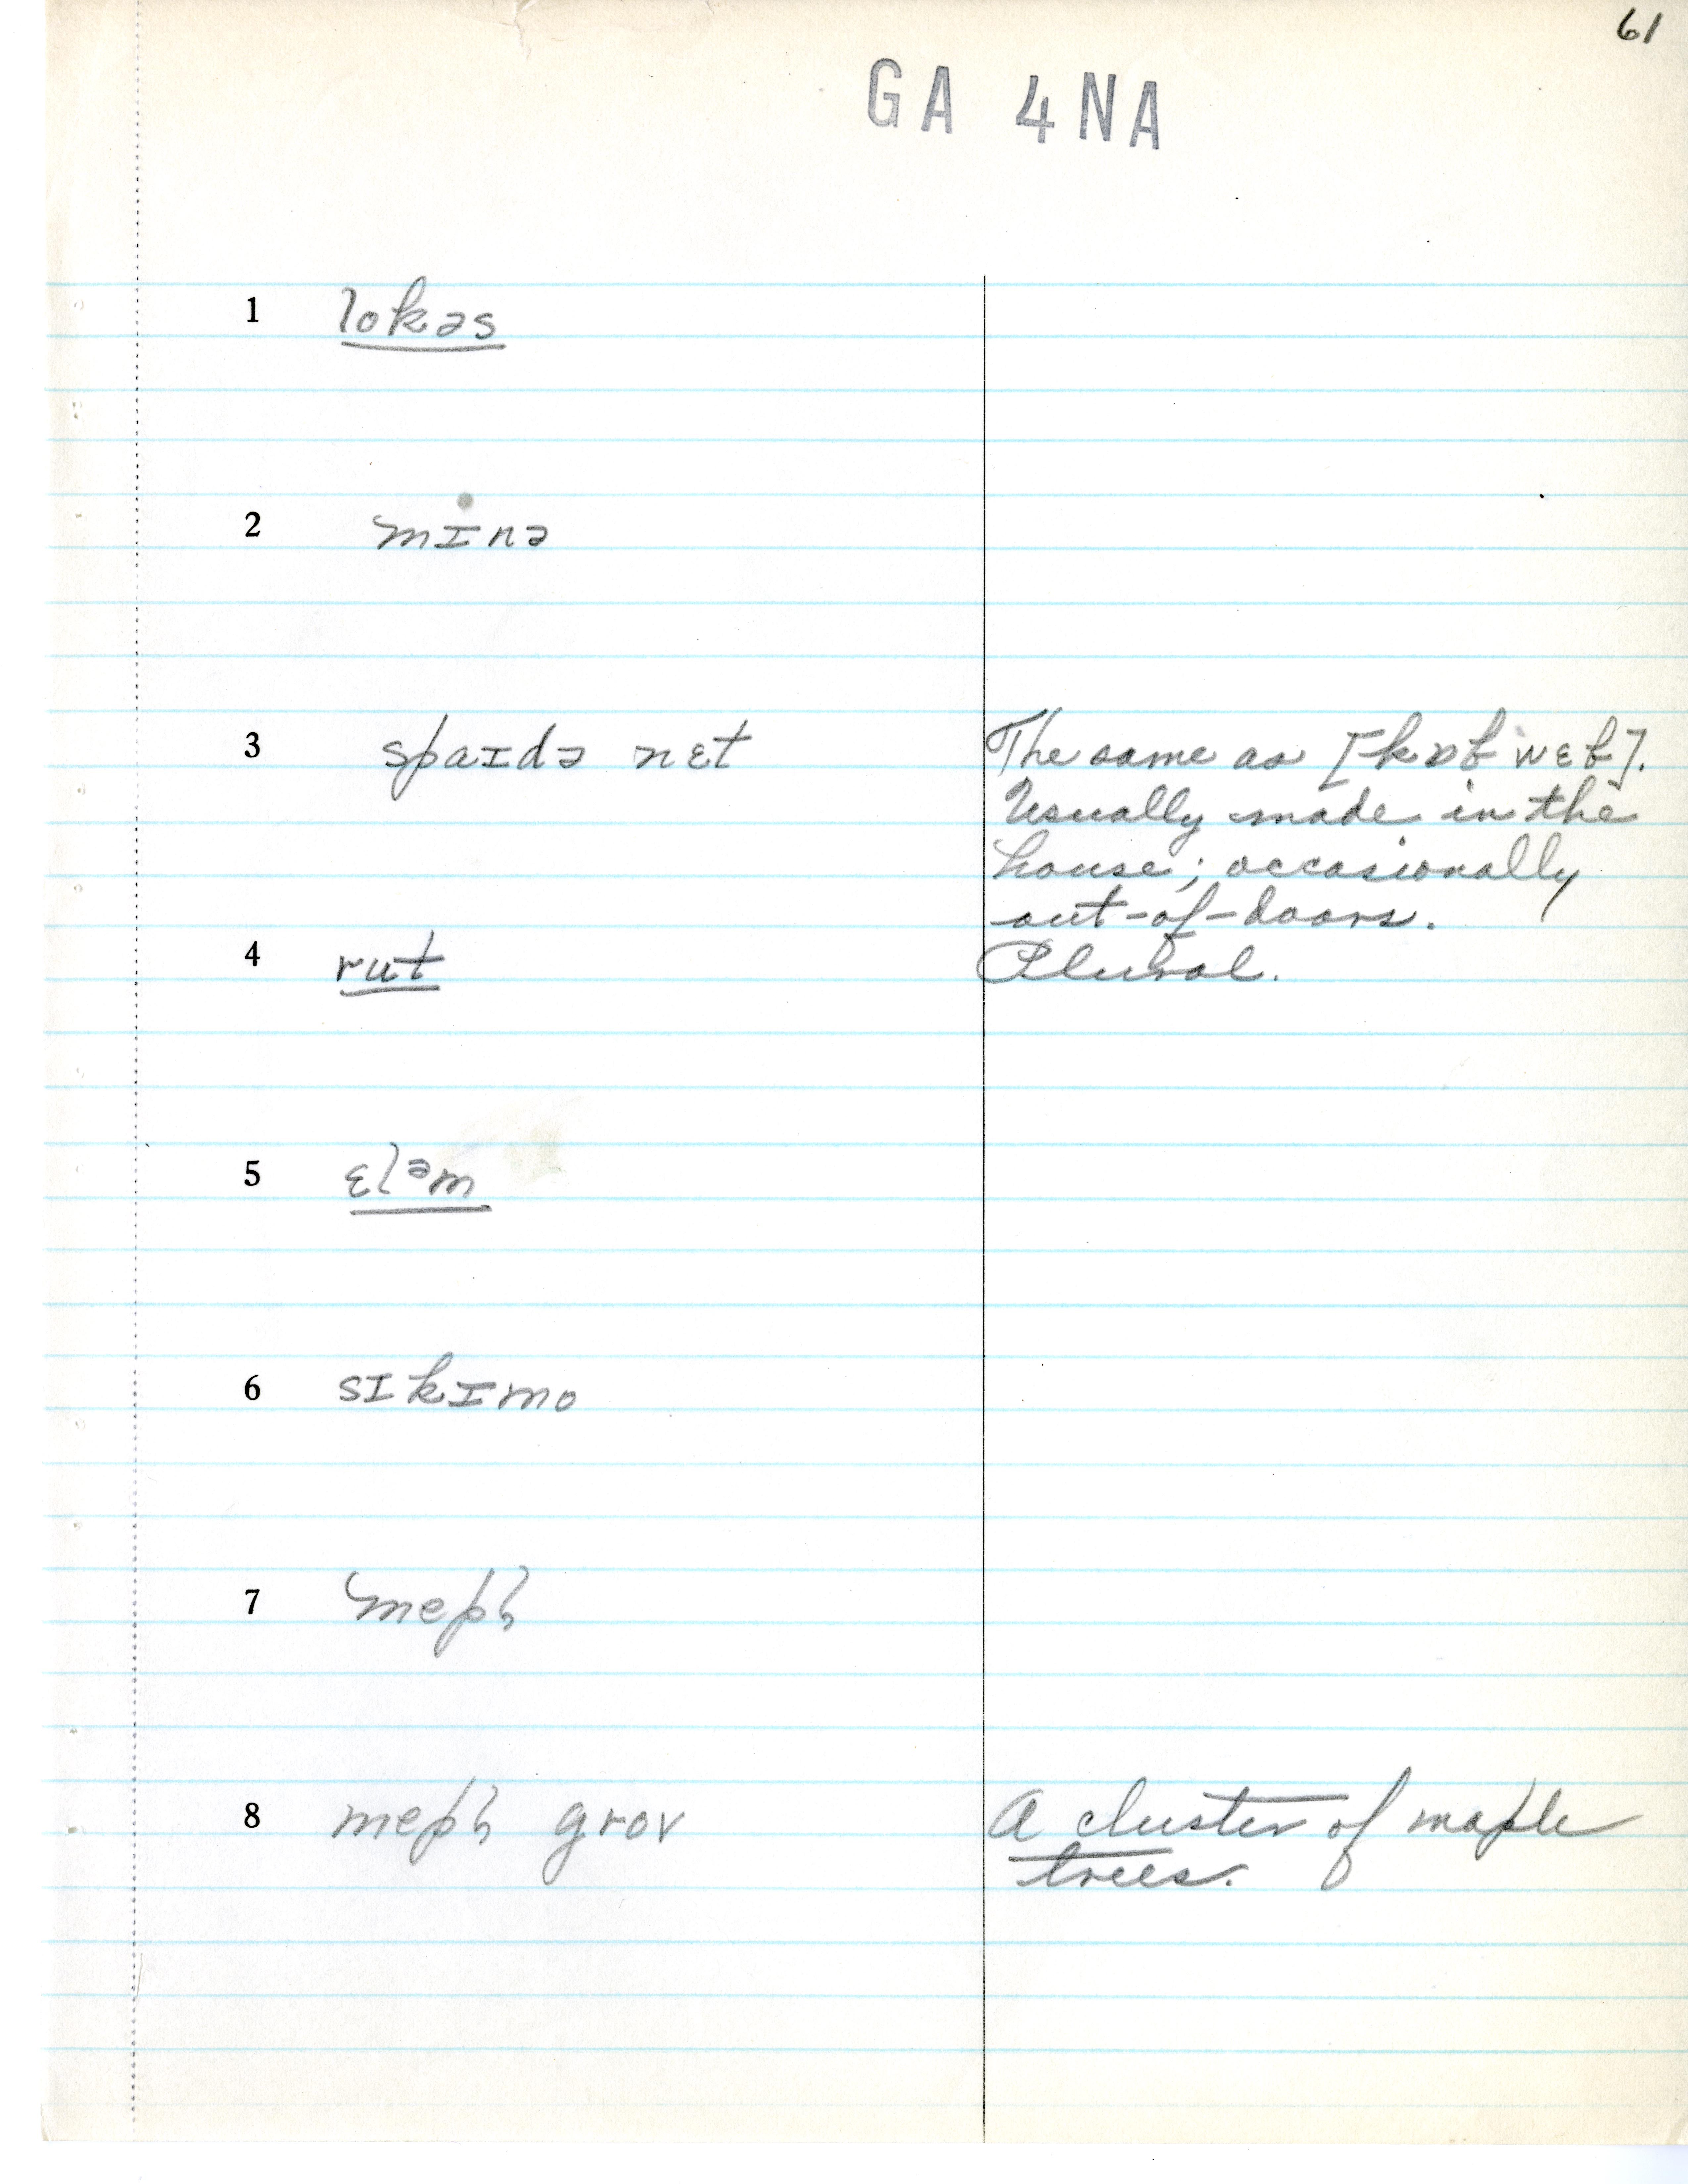 61
GA 4NA
1 lokəs
2 mɪnə
3 spaɪdə nɛt
The same as [kɒb wɛb].
Usually made in the
house; occasionally
out-of-doors.
4 rut
Plural.
5 ɛlᵊm
6 sɪkɪmo
7 mepl̩
8 mepl̩ grov
A cluster of maple
trees.